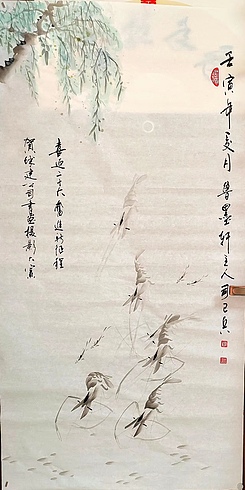 壬寅年夏月鲁墨轩主人
喜迎二十大奋进新征程
贺佳建公司书画摄影大赛